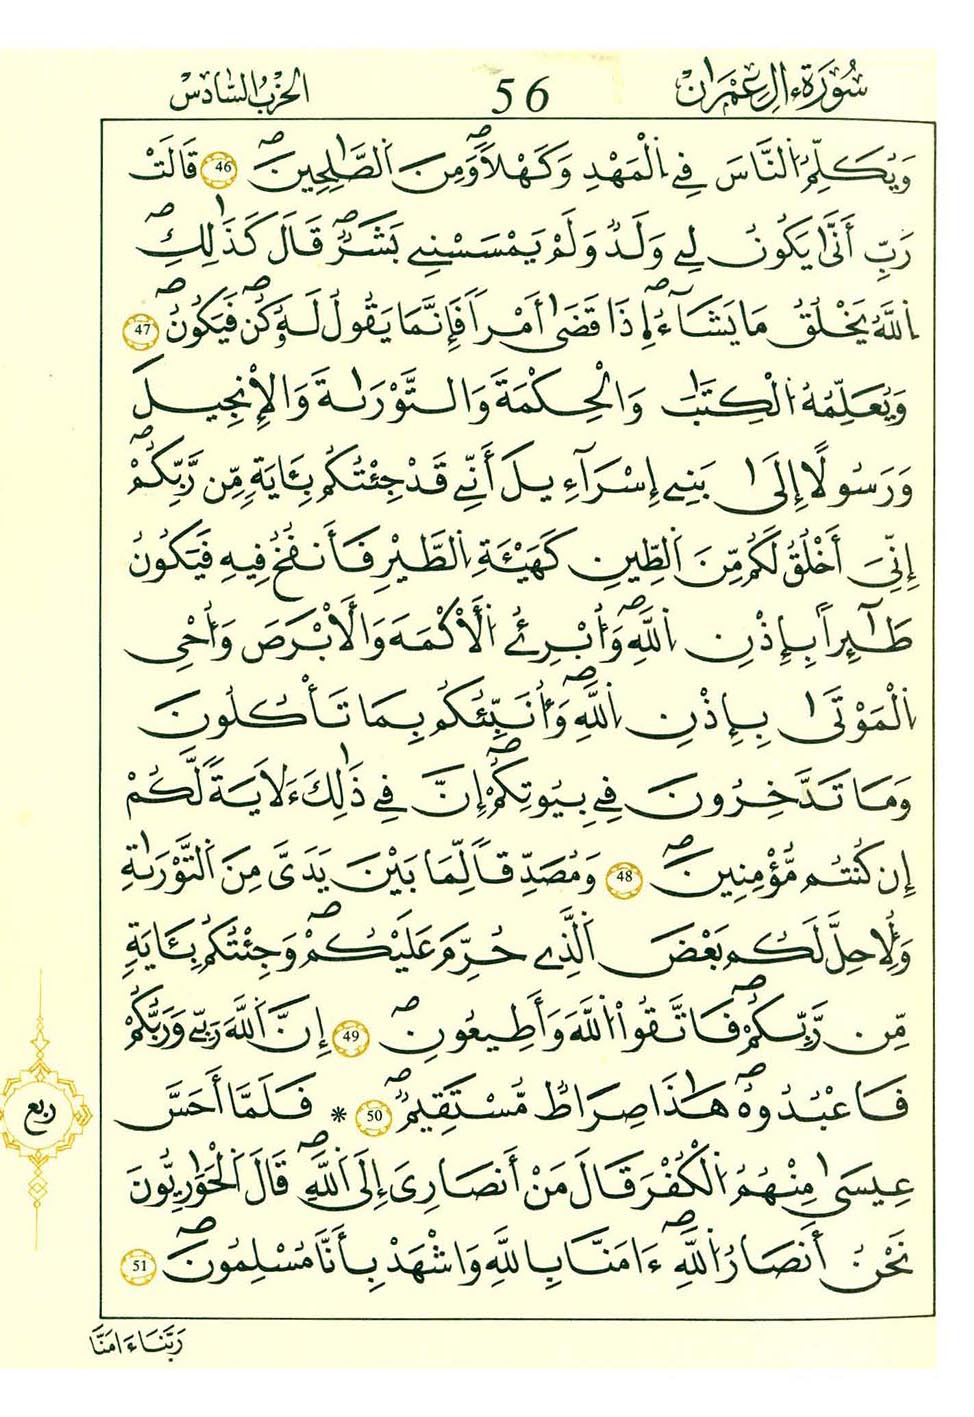 سُورَةُ ءَالِ عِمْرَٰنَ
56
الحِزْبُ السَّادِسُ
وَيُكَلِّمُ اُ۬لنَّاسَ فِے اِ۬لْمَهْدِ وَكَهْلاٗۖ وَمِنَ اَ۬لصَّٰلِحِينَۖ 46 قَالَتْ
رَبِّ أَنّ۪ىٰ يَكُونُ لِے وَلَدٞ وَلَمْ يَمْسَسْنِے بَشَرٞۖ قَالَ كَذَٰلِكِۖ
اِ۬للَّهُ يَخْلُقُ مَا يَشَآءُۖ ا۪ذَا قَض۪ىٰٓ أَمْراٗ فَإِنَّمَا يَقُولُ لَهُۥ كُنۖ فَيَكُونُۖ 47
وَيُعَلِّمُهُ اُ۬لْكِتَٰبَ وَالْحِكْمَةَ وَالتَّوْر۪ىٰةَ وَالْإِنجِيلَ
وَرَسُولاً إِلَىٰ بَنِے إِسْرَآءِيلَ أَنِّے قَدْ جِئْتُكُم بِـَٔايَةٖ مِّن رَّبِّكُمُۥٓۖ
إِنِّيَ أَخْلُقُ لَكُم مِّنَ اَ۬لطِّينِ كَهَيْـَٔةِ اِ۬لطَّيْرِ فَأَنفُخُ فِيهِ فَيَكُونُ
طَٰٓئِراَۢ بِإِذْنِ اِ۬للَّهِۖ وَأُبْرِۓُ اُ۬لَاكْمَهَ وَالَابْرَصَ وَأُحْيِ
اِ۬لْمَوْتَىٰ بِإِذْنِ اِ۬للَّهِۖ وَأُنَبِّئُكُم بِمَا تَأْكُلُونَ
وَمَا تَدَّخِرُونَ فِے بُيُوتِكُمُۥٓۖ إِنَّ فِے ذَٰلِكَ ءَلَايَةٗ لَّكُمُۥ
إِن كُنتُم مُّؤْمِنِينَۖ 48 وَمُصَدِّقاٗ لِّمَا بَيْنَ يَدَيَّ مِنَ اَ۬لتَّوْر۪ىٰةِ
وَلِأُحِلَّ لَكُم بَعْضَ اَ۬لذِے حُرِّمَ عَلَيْكُمْۖ وَجِئْتُكُم بِـَٔايَةٖ
مِّن رَّبِّكُمْۖ فَاتَّقُواْ اُ۬للَّهَ وَأَطِيعُونِۖ 49 إِنَّ اَ۬للَّهَ رَبِّے وَرَبُّكُمْ
فَاعْبُدُوهُۖ هَٰذَا صِرَٰطٞ مُّسْتَقِيمٞۖ 50 * فَلَمَّا أَحَسَّ
عِيسَىٰ مِنْهُمُ اُ۬لْكُفْرَ قَالَ مَنَ اَنصَارِيَ إِلَى اَ۬للَّهِۖ قَالَ اَ۬لْحَوَارِيُّونَ
نَحْنُ أَنصَارُ اُ۬للَّهِۖ ءَامَنَّا بِاللَّهِ وَاشْهَدْ بِأَنَّا مُسْلِمُونَۖ 51
ربع
رَبَّنَا ءَامَنَّا